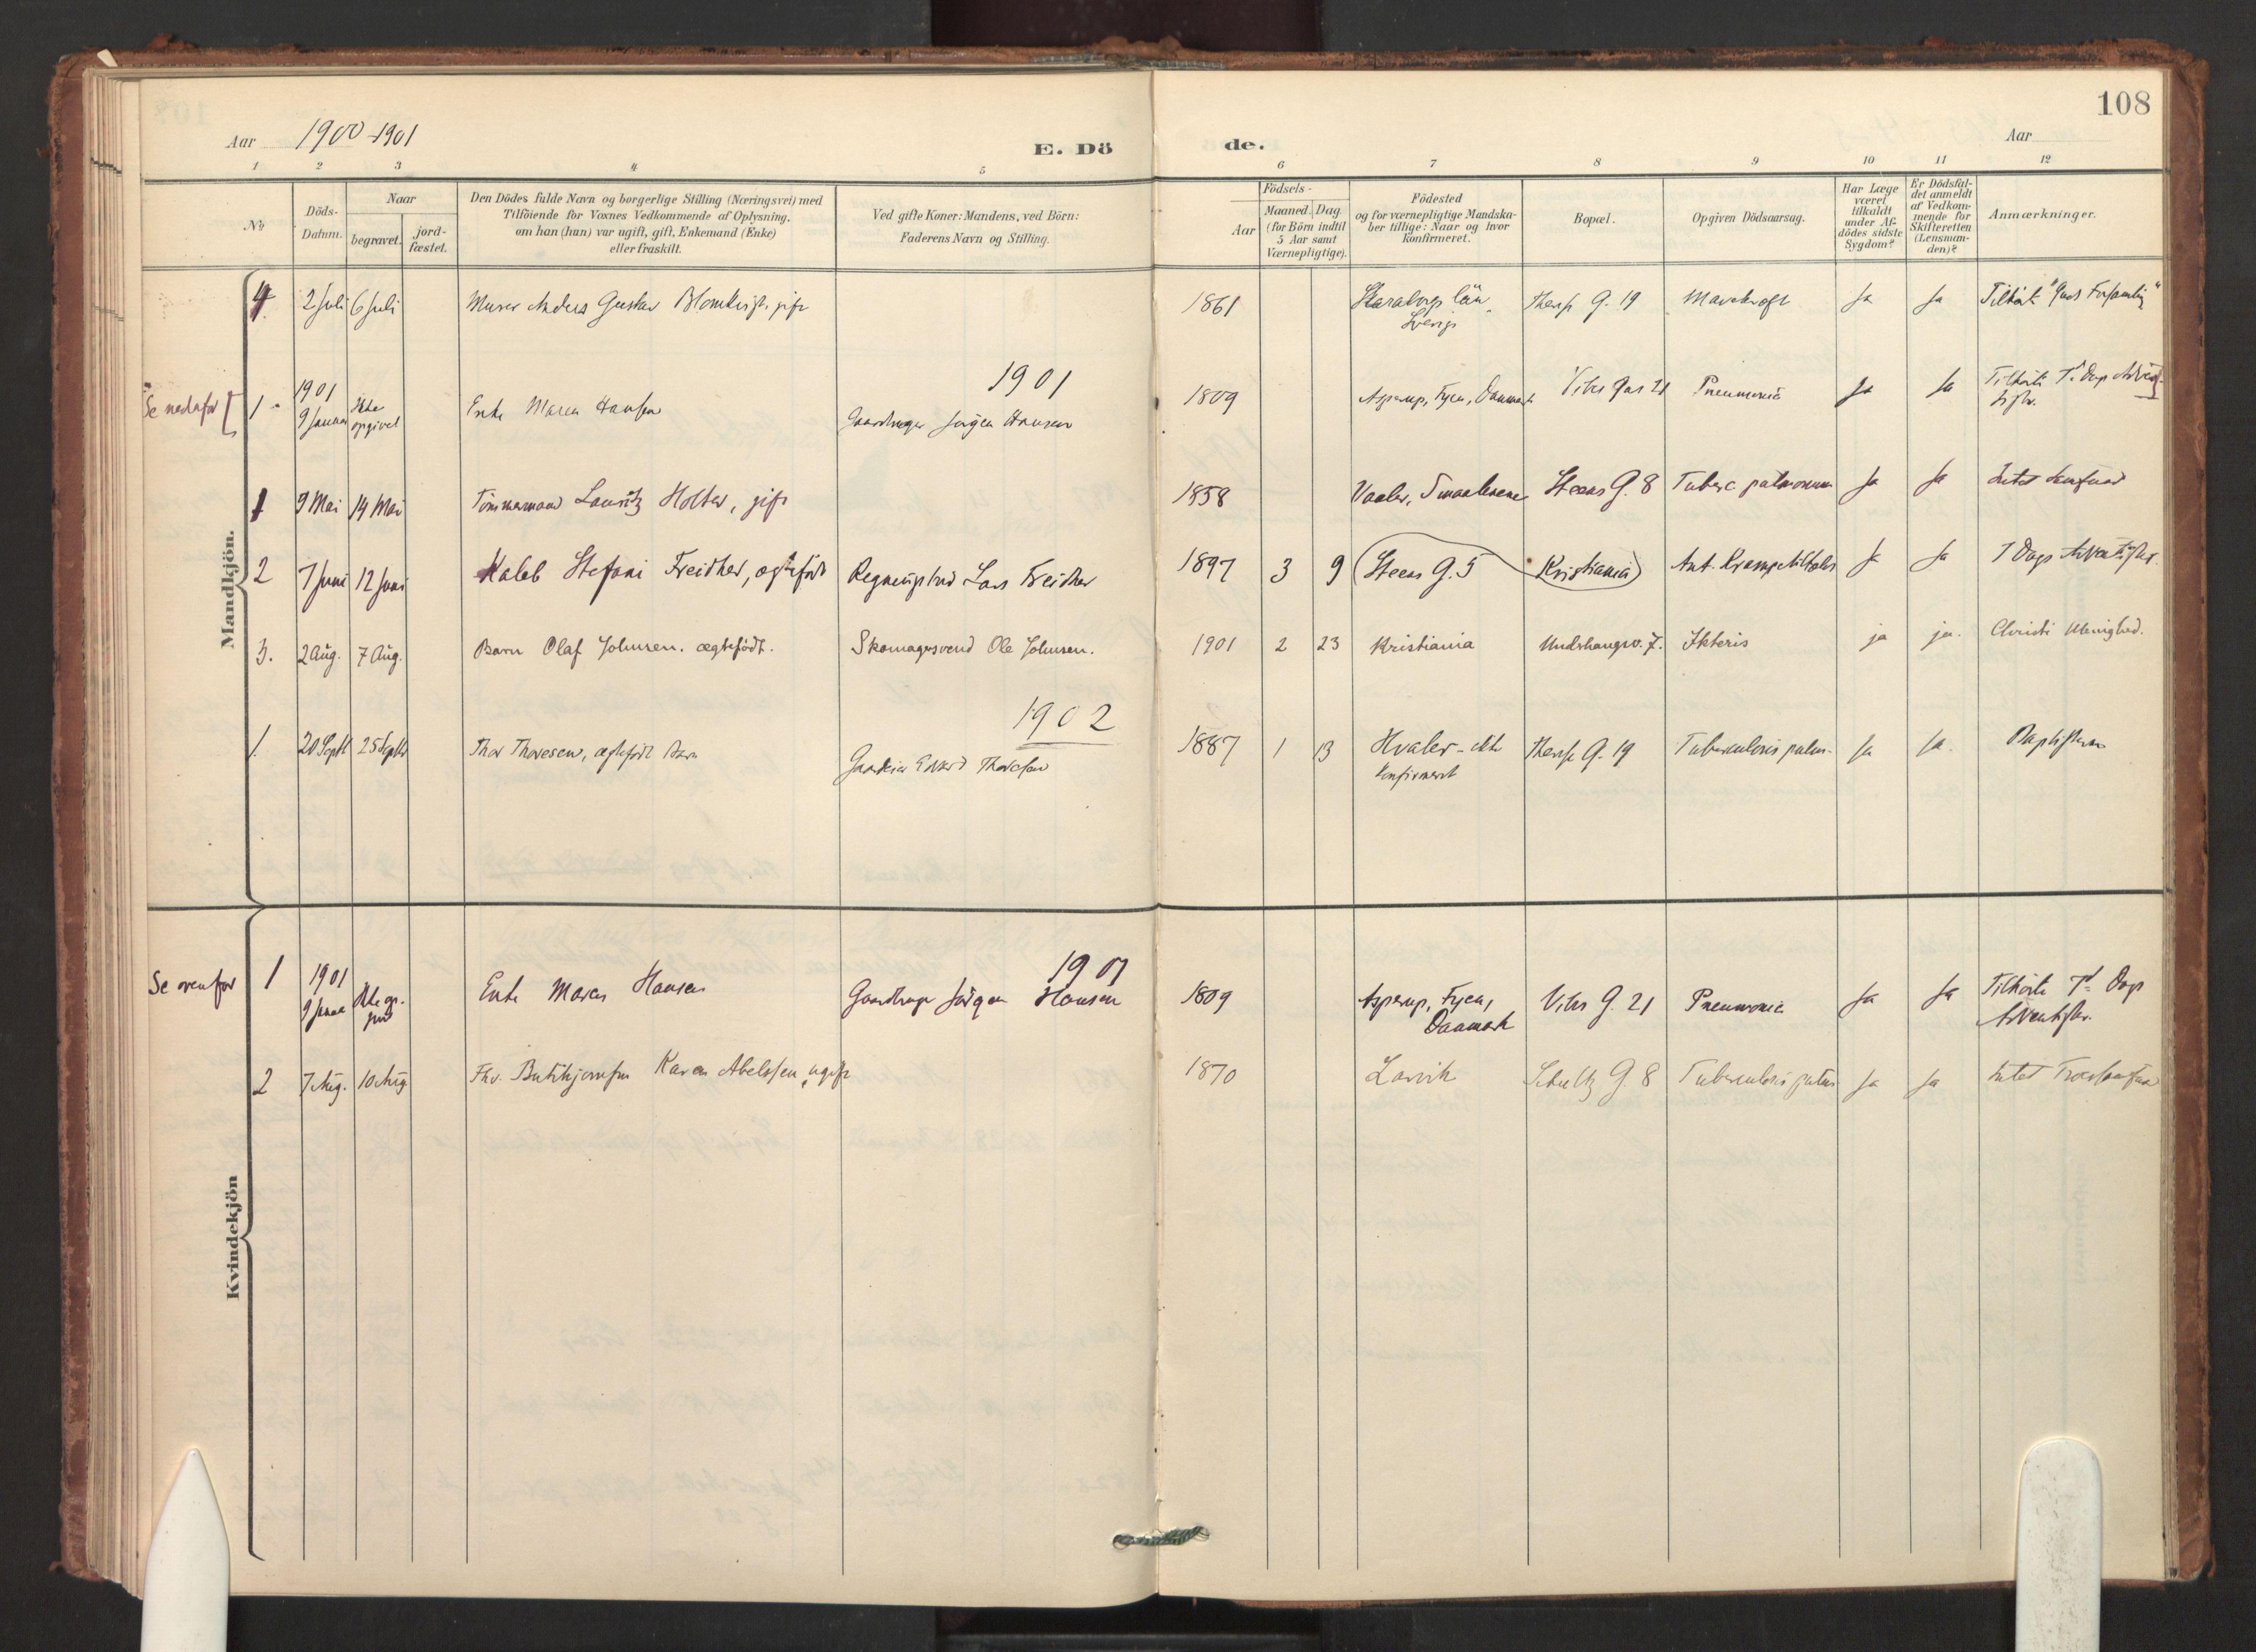 108
Aar 1900-1901
E. Dö
de.
Aar
1 2 3 4 5 6 7 8 9 10 11 12
No
Döds-Datum.
Naar
begravet.
jord-fæstet.
Den Dödes fulde Navn og borgerlige Stilling (Næringsvei) med
Tilföiende for Voxnes Vedkommende af Oplysning,
om han (hun) var ugift, gift, Enkemand (Enke)
eller fraskilt.
Ved gifte Koner: Mandens, ved Börn:
Faderens Navn og Stilling.
Födsels-
Aar
Maaned. Dag.
(for Börn indtil
5 Aar samt
Værnepligtige).
Födested
og for værnepligtige Mandska-
ber tillige: Naar og hvor
konfirmeret.
Bopæl.
Opgiven Dödsaarsag.
Har Læge
været
tilkaldt
under Af-
dödes sidste
Sygdom?
Er Dödsfal-
det anmeldt
af Vedkom-
mende for
Skifteretten
(Lensman-
den)?
Anmærkninger.
Mandkjön.
4 2 Juli 6 Juli Murer Anders Gustav Blomkvist, gift 1861 Skaraborgs län, Thorsh G. 19 Ja Ja Tilhörte "Guds
Sverige
1901
Se nedenfor 1 1901
9 Januar Ikke opgivet Enke Maren Hansen Gaardbruger Jörgen Hansen 1809 Asperup, Fyen, Danmark Vibes Gas 21 Pneumonia Ja Ja Tilhörte 7de Dags Adven-
tister.
1 9 Mai 14 Mai Tömmermand Lauritz Holter, gift 1858 Vaaler, Smaalenene Steens G. 8 Tuberc pulmonum Ja Ja Intet Samfund
2 7 Juni 12 Juni Kaleb Stefani Freidher, ægtefödt Regningsbud Lars Freidher 1897 3 9 Steens G. 5 Kristiania Ja Ja 7 Dags Adventister.
3. 2 Aug. 7 Aug. Barn Olaf Johnsen. ægtefödt. Skomagersvend Ole Johnsen. 1901 2 23 Kristiania Underhaugsv. 7. Ikteris ja ja. Christi Menighed.
1902
1. 20 Septbr 25 Septbr Thor Thoresen, ægtefödt Barn Edvard Thoresen 1887 1 13 Hvaler - ikke Thorsh G. 19 Tuberculosis pulm. Ja Ja. Baptisterne
konfirmeret
Kvindekjön
1901
Se ovenfor 1 1901
9 Januar Ikke op-
givet Enke Maren Hansen Gaardbruger Jörgen Hansen 1809 Asperup, Fyen,
Danmark Vibes G. 21 Pneumonia Ja Ja Tilhörte 7de Dags
Adventister.
2 7 Aug. 10 Aug. Fhv. Butikjomfru Karen Abelsen, ugift 1870 Larvik Schultz G. 8 Tuberculosis pulm Ja Ja Intet Trossamfund